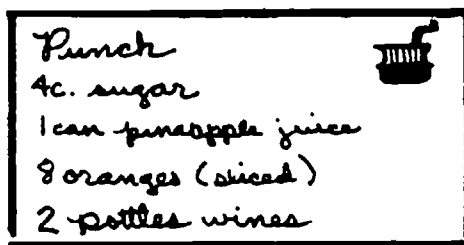 Punch
4c. sugar
1 can pineapple juice
8 oranges (sliced)
2 bottles wines